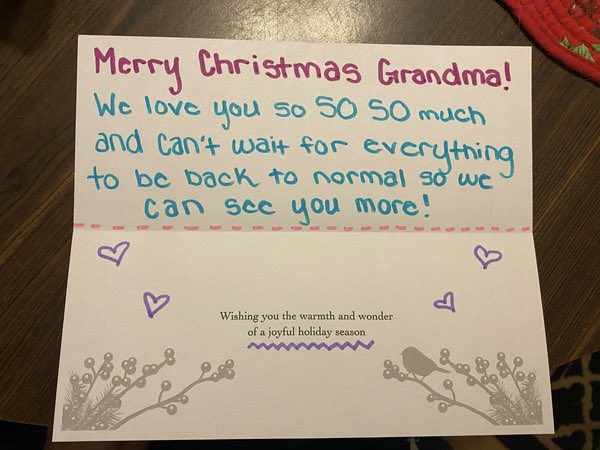 Merry Christmas Grandma!
We love you so SO SO much
and can't wait for everything
to be back to normal so we
can see you more!
Wishing you the warmth and wonder
of a joyful holiday season